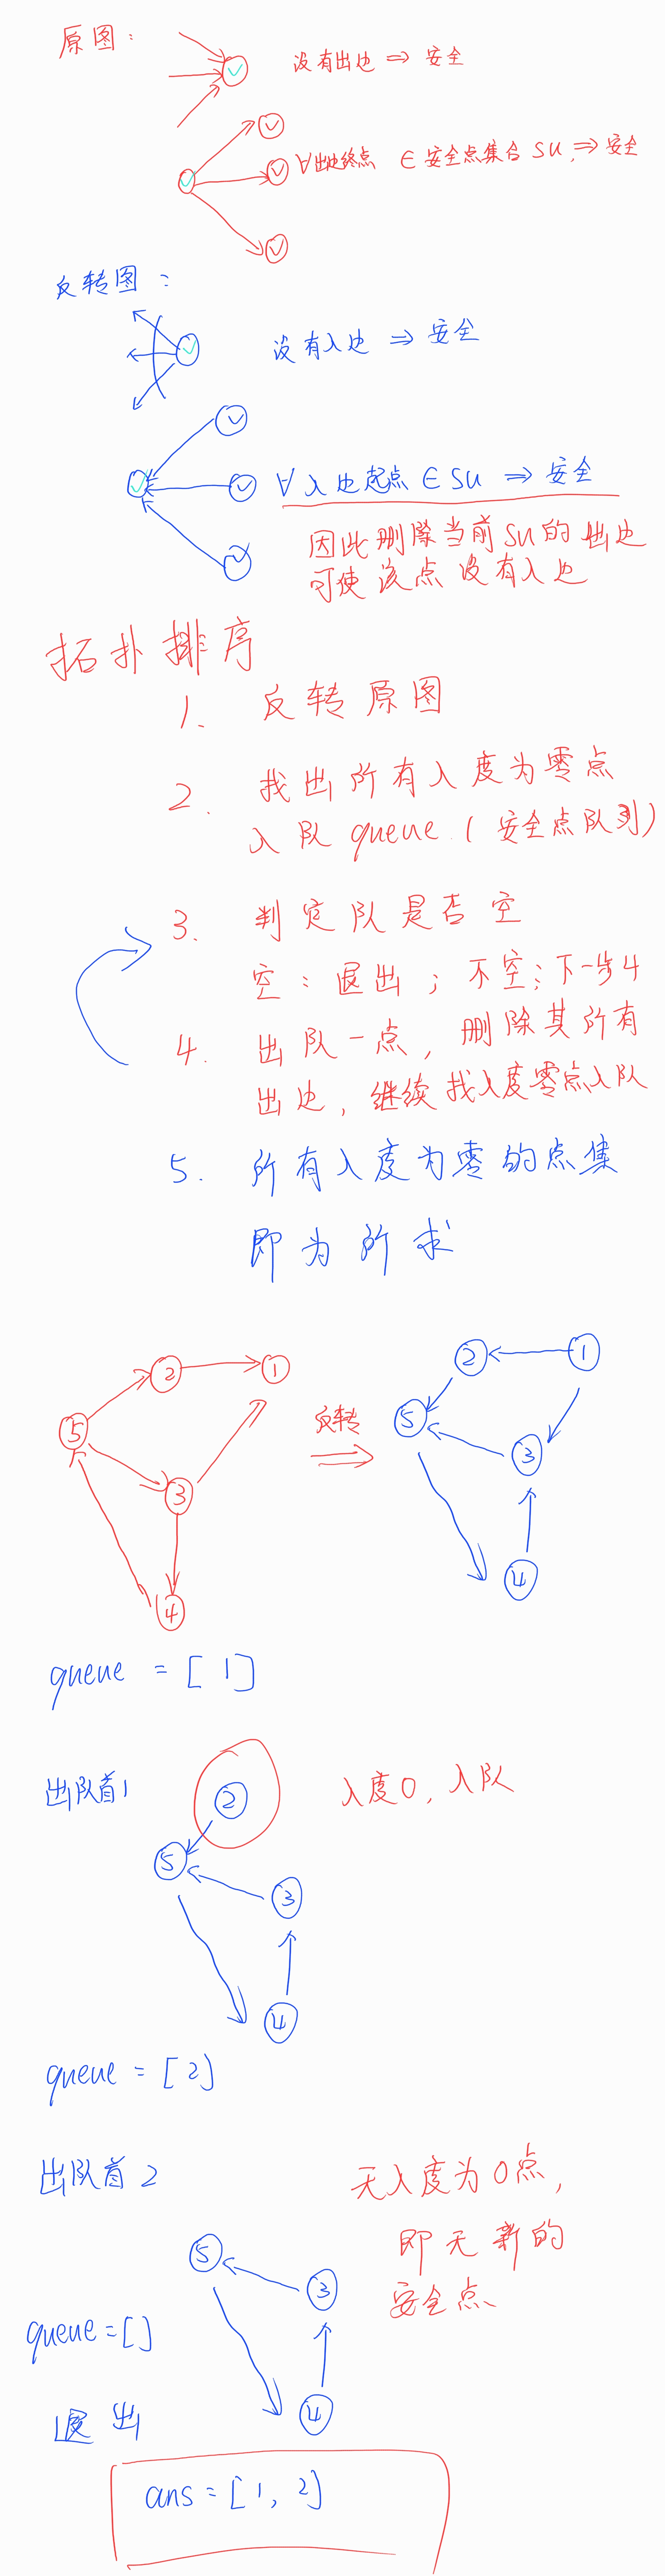 原图：
没有出边 ⇒ 安全
∀出边终点 ∈ 安全点集合 SU, ⇒ 安全
反转图：
没有入边 ⇒ 安全
∀ 入边起点 ∈ SU ⇒ 安全
因此删除当前SU的出边
可使该点没有入边
拓扑排序
1. 反转原图
2. 找出所有入度为零点
入队 queue (安全点队列)
3. 判定队是否空
空：退出；不空：下一步4
4. 出队一点，删除其所有
出边，继续找入度零点入队
5. 所有入度为零的点集
即为所求
2 1
5
3
4
反转
2 1
5
3
4
queue = [ 1 ]
出队首1
2
入度0，入队
5
3
4
queue = [2]
出队首 2
无入度为0点，
即无新的
安全点
5
3
queue = []
4
退出
ans = [1, 2]